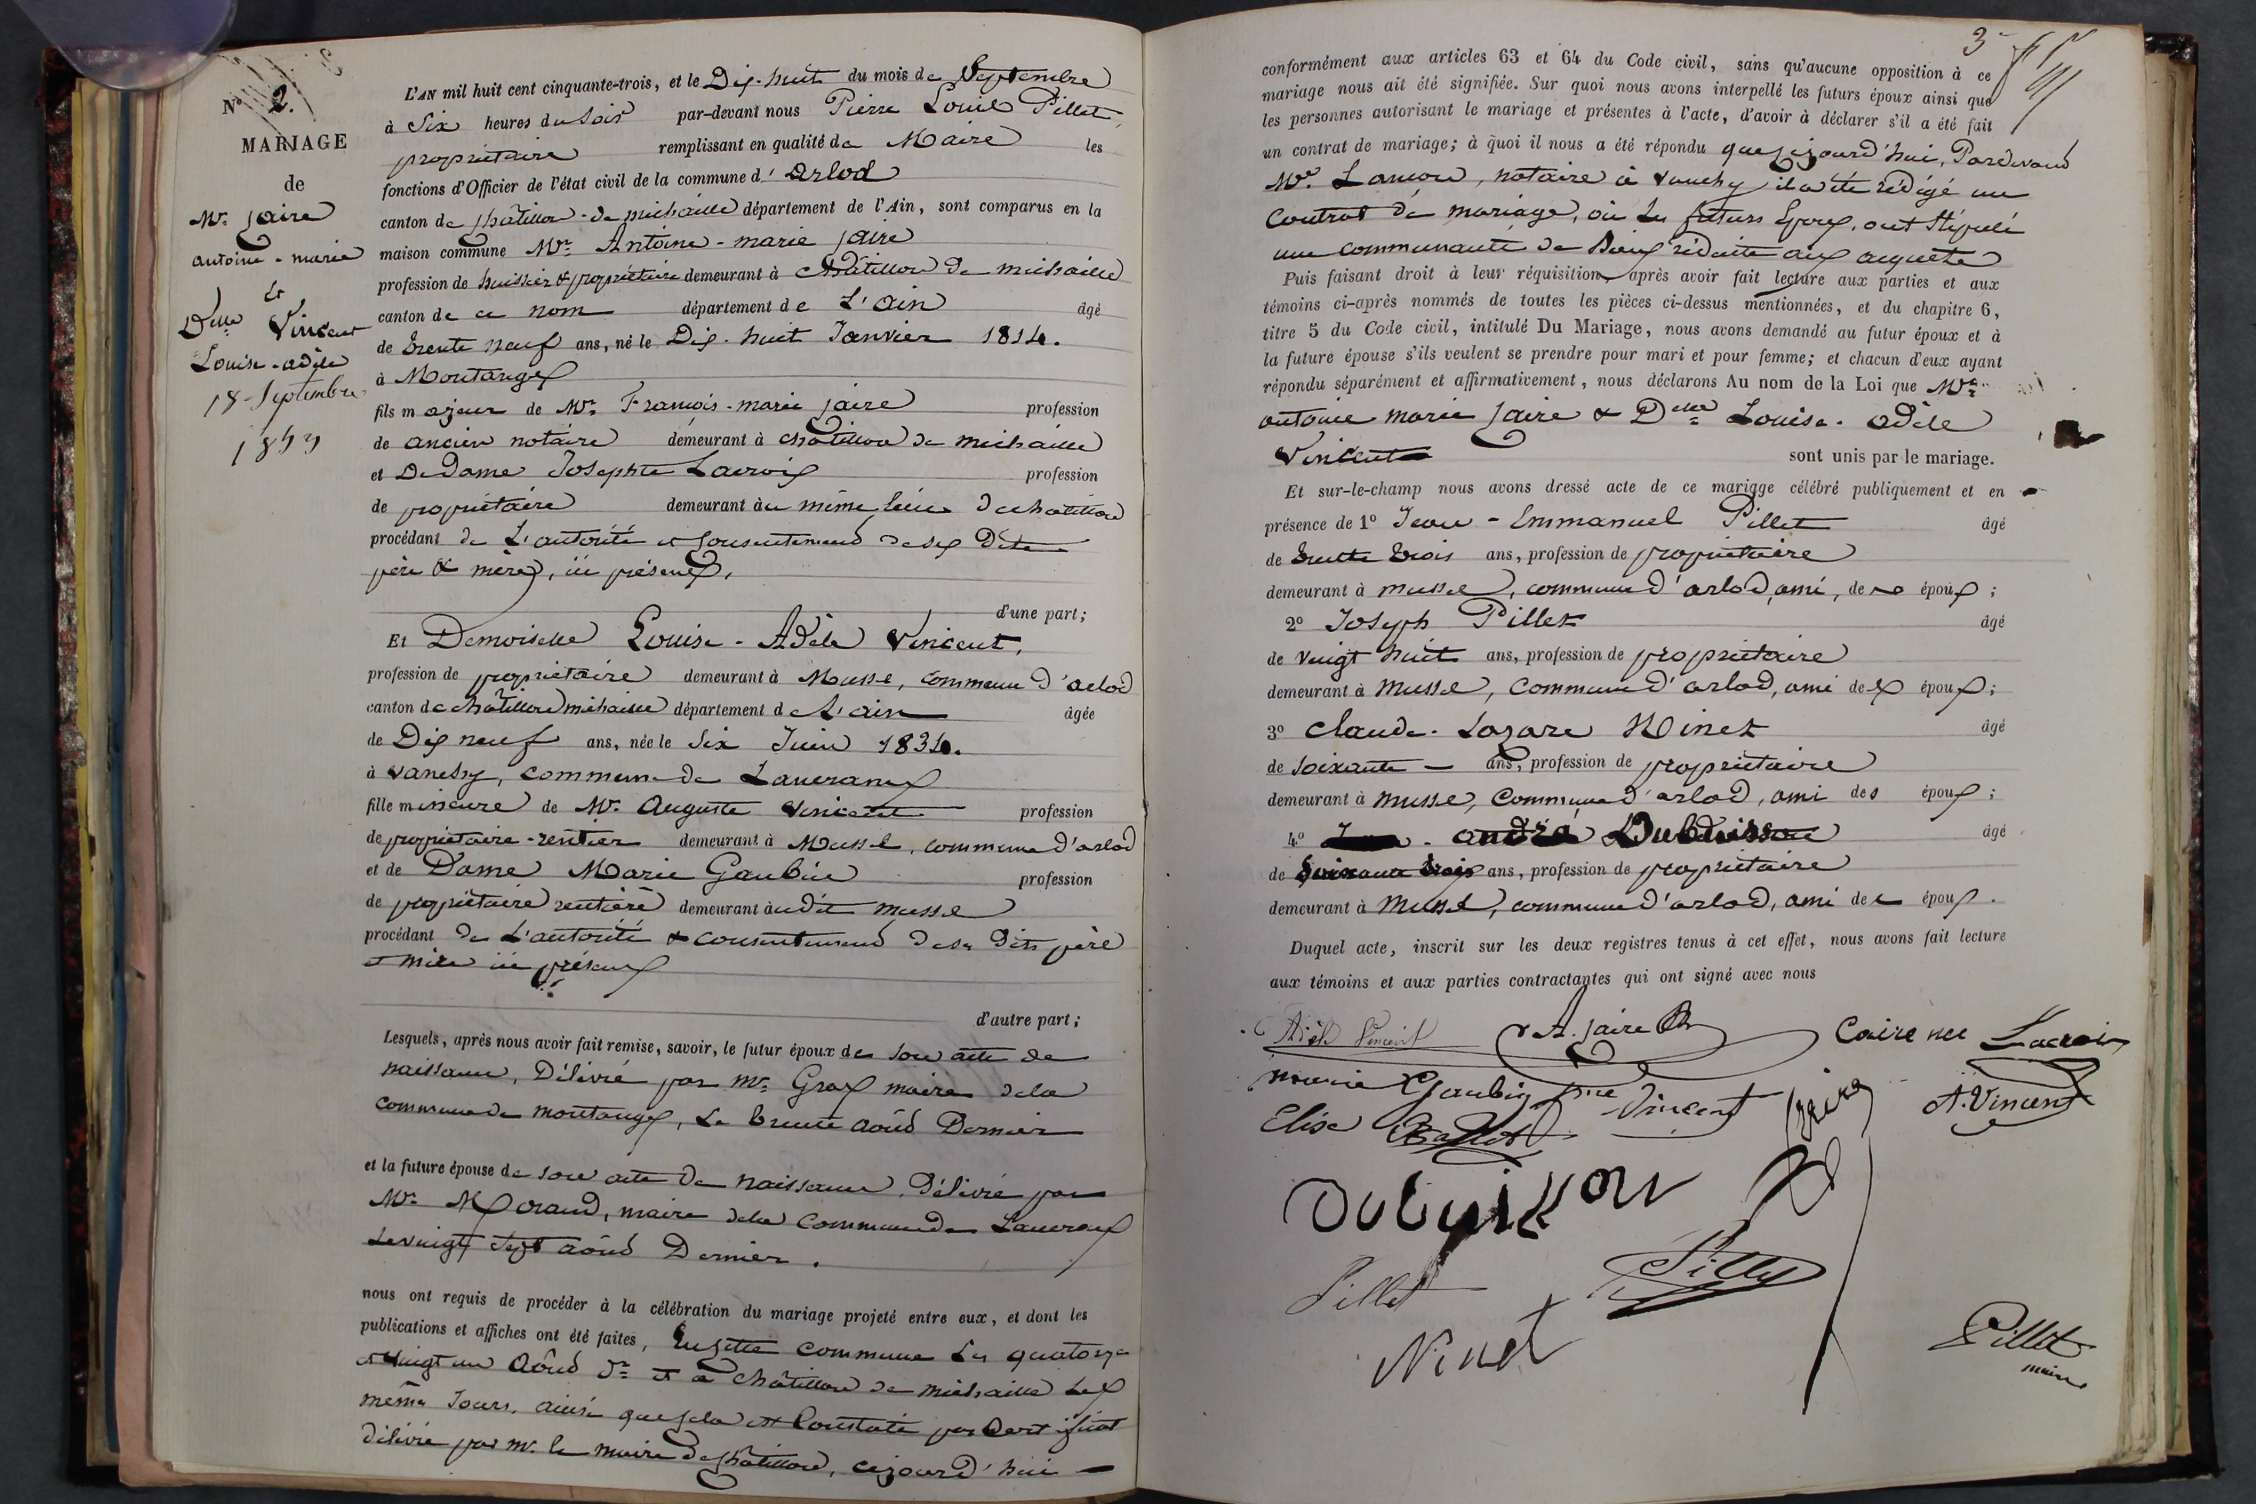 N° 2.
MARIAGE
de
Mr. Jaire
antoine - marie
et
Delle Vincent
Louise - adèle
18 Septembre
1853
L'AN mil huit cent cinquante-trois, et le Dix-huit du mois de Septembre
à Six heures du Soir par-devant nous Pierre Louis Pillet,
propriétaire remplissant en qualité de Maire les
fonctions d'Officier de l'état civil de la commune d'Arlod
canton de châtillon-de michaille département de l'Ain, sont comparus en la
maison commune Mr. Antoine - marie Jaire
profession de huissier & propriétaire demeurant à Châtillon de michaille
canton de ce nom département de L'ain âgé
de trente neuf ans, né le Dix-huit Janvier 1814.
à Montanges
fils majeur de Mr. François-marie Jaire profession
de ancien notaire demeurant à châtillon de michaille
et De Dame Josephte Lacroix profession
de propriétaire demeurant au même lieu de chatillon
procédant de L'autorité et consentement de ses Dits
père & mère, ici présens,
d'une part;
Et Demoiselle Louise - Adèle Vincent,
profession de propriétaire demeurant à Mussel, commune d'arlod
canton de châtillon michaille département de L'ain âgée
de Dix neuf ans, née le Six Juin 1834.
à vanchy, commune de Lancrans
fille mineure de Mr. Auguste Vincent profession
de propriétaire-rentier demeurant à Mussel, commune d'arlod
et de Dame Marie Gaubin profession
de propriétaire rentière demeurant audit mussel
procédant de L'autorité & consentement de ses Dits père
et mère ici présens
d'autre part;
Lesquels, après nous avoir fait remise, savoir, le futur époux de son acte de
naissance, Délivré par mr. Grox maire de la
commune de montanges, Le trente aoûd Dernier
et la future épouse de son acte de naissance, délivré par
Mr. maire de la Commune de Lancrans
Le vingt sept aoûd Dernier.
nous ont requis de procéder à la célébration du mariage projeté entre eux, et dont les
publications et affiches ont été faites, En cette commune Les quatorze
et vingt un Aoûd Dr. et à châtillon de michaille Les
même Jours, ainsi que cela est Constaté par Certificat
délivré par mr. le maire de châtillon, cejourd'hui
3
conformément aux articles 63 et 64 du Code civil, sans qu'aucune opposition à ce
mariage nous ait été signifiée. Sur quoi nous avons interpellé les futurs époux ainsi que
les personnes autorisant le mariage et présentes à l'acte, d'avoir à déclarer s'il a été fait
un contrat de mariage; à quoi il nous a été répondu que cejourd'hui, Pardevand
Me. Lançon, notaire à vanchy il a été rédigé un
Contrat de mariage, où Les futurs Epoux, ont Stipulé
une communauté de Biens réduite aux acquêts
Puis faisant droit à leur réquisition, après avoir fait lecture aux parties et aux
témoins ci-après nommés de toutes les pièces ci-dessus mentionnées, et du chapitre 6,
titre 5 du Code civil, intitulé Du Mariage, nous avons demandé au futur époux et à
la future épouse s'ils veulent se prendre pour mari et pour femme; et chacun d'eux ayant
répondu séparément et affirmativement, nous déclarons Au nom de la Loi que Mr.
antoine marie Jaire & Delle Louise - adèle
Vincent sont unis par le mariage.
Et sur-le-champ nous avons dressé acte de ce mariage célébré publiquement et en
présence de 1° Jean - Emmanuel Pillet âgé
de trente trois ans, profession de propriétaire
demeurant à mussel, commune d'arlod, ami, des époux;
2° Joseph Pillet âgé
de vingt huit ans, profession de propriétaire
demeurant à Mussel, commune d'arlod, ami des époux;
3° Claude - Lazare Ninet âgé
de soixante ans, profession de propriétaire
demeurant à mussel, commune d'arlod, ami des époux;
4° andré Dubuisson âgé
de Soixante trois ans, profession de propriétaire
demeurant à Mussel, commune d'arlod, ami des époux.
Duquel acte, inscrit sur les deux registres tenus à cet effet, nous avons fait lecture
aux témoins et aux parties contractantes qui ont signé avec nous
Adèle Vincent A. Jaire Caire née Lacroix
marie Gaubin Vincent A. Vincent
Elisa
Dubuisson
Pillet
Ninet
Pillet
maire